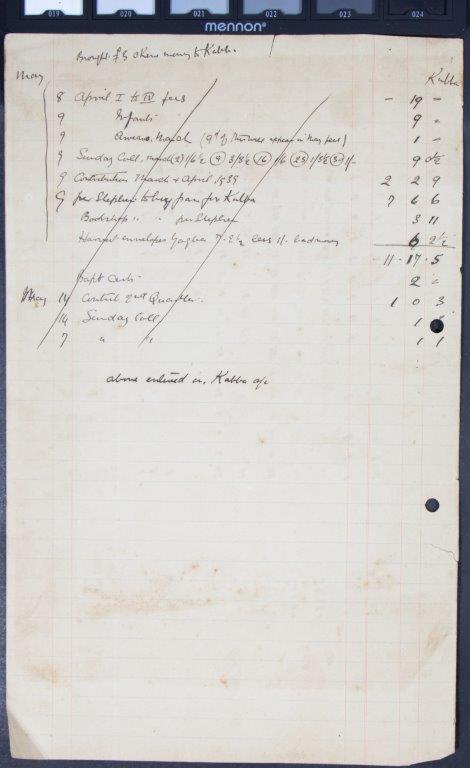 019 020 021 022 023 024
mennon
Brought fr Okene money to Kabba.
May Kabba
8 April I to IV fees - 19 -
9 Infants 9 -
9 Arrears March (9d of this appear in May fees) 1 -
9 Sunday Coll. March (2) 1/6½ (9) 3/8½ (16) 1/6 (23) 1/3½ (30) 1/- 9 0½
9 Contribution March & April 1939 2 2 9
9 per Stephen to buy pram for Kabba 7 6 6
Bookshop " " per Stephen 3 11
Harvest envelopes 7-2½ less 1/- bad money 6 2½
11-17-5
Bapt Cards 2 -
May 14 Contrib. 2nd Quarter 1 0 3
14 Sunday Coll. 1
7 " " 1 1
above entered in Kabba a/c